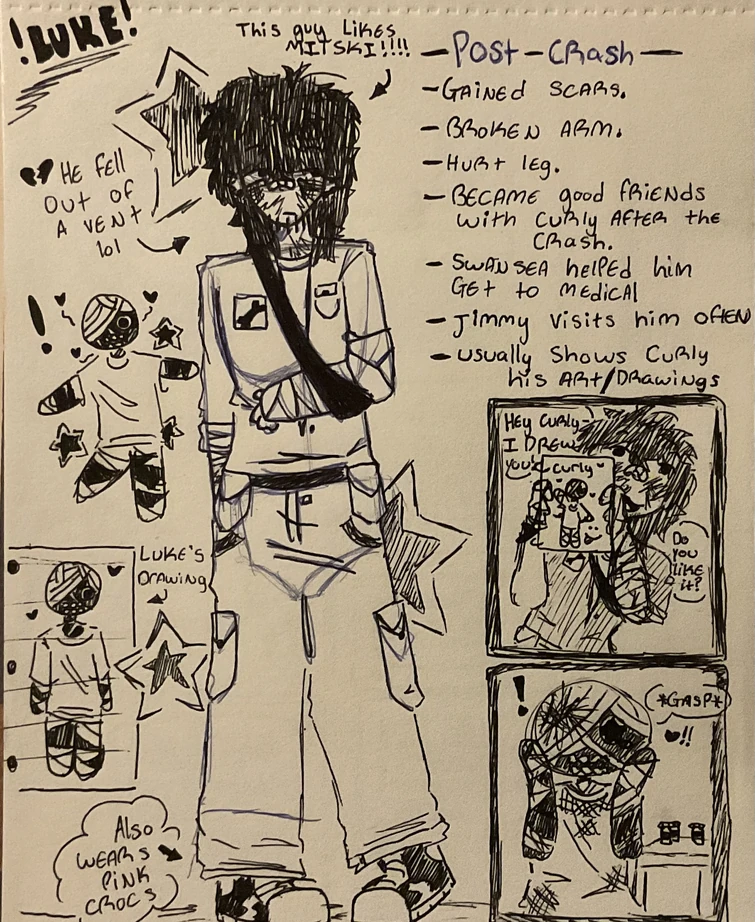 !LUKE!
This guy LiKES
MiTSKi!!!!
HE fELL
OUT OF
A VENT
lol
- Post - CRASH -
- GAiNEd SCARS.
- BROKEN ARM.
- HuRt leg.
- BECAME good fRiENDS
with CuRLy AFTER the
CRASH.
- SWANSEA hElPEd him
GEt to MEdiCAl
- Jimmy VisitS him OftEN
- usuAlly Shows CuRly
his ARt/DRAwiNgs
!
LUKE'S
DRAWiNg
Also
WEARS
PiNK
CROCS
HEy CuRLy
I DREW
you!
CuRLy
Do
you
LiKE
it?
!
*GASP*
!!